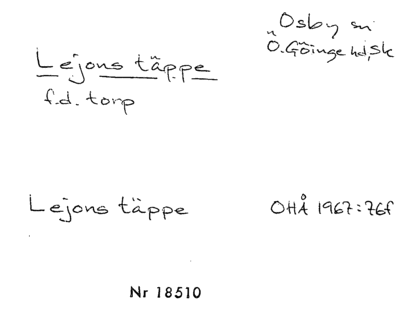 Osby sn
Ö. Göinge hd, Sk
Lejons täppe
f.d. torp
Lejons täppe
OHÅ 1967:76f
Nr 18510